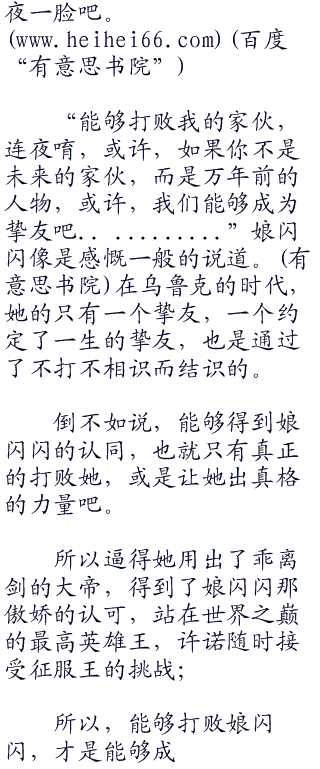 夜一脸吧。
(www.heihei66.com)(百度
“有意思书院”)
“能够打败我的家伙，
连夜唷，或许，如果你不是
未来的家伙，而是万年前的
人物，或许，我们能够成为
挚友吧............”娘闪
闪像是感慨一般的说道。(有
意思书院)在乌鲁克的时代，
她的只有一个挚友，一个约
定了一生的挚友，也是通过
了不打不相识而结识的。
倒不如说，能够得到娘
闪闪的认同，也就只有真正
的打败她，或是让她出真格
的力量吧。
所以逼得她用出了乖离
剑的大帝，得到了娘闪闪那
傲娇的认可，站在世界之巅
的最高英雄王，许诺随时接
受征服王的挑战；
所以，能够打败娘闪
闪，才是能够成